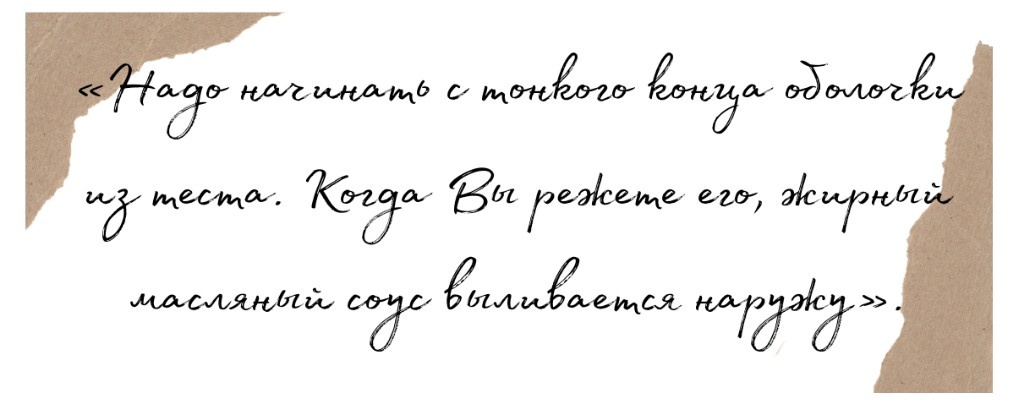 «Надо начинать с тонкого конца оболочки
из теста. Когда Вы режете его, жирный
масляный соус выливается наружу».